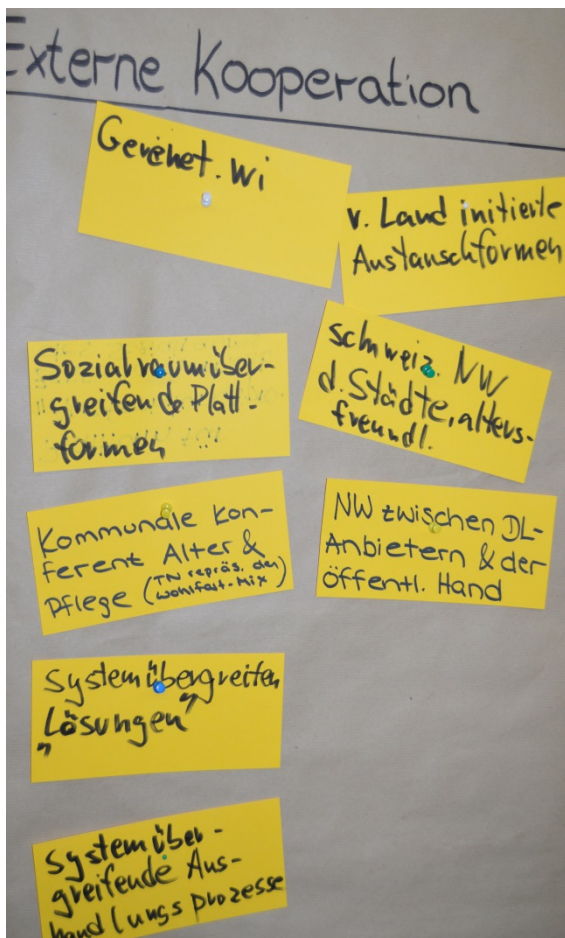 Externe Kooperation
Gerenet.wi
v. Land initiierte
Austauschformen
Sozialraumüber-
greifende Platt-
formen
schweiz. NW
d. Städte, alters-
freundl.
Kommunale Kon-
ferenz Alter &
Pflege (TN repräs. den
Wohlfart-Mix)
NW zwischen DL-
Anbietern & der
öffentl. Hand
Systemübergreifen
„Lösungen"
Systemüber-
greifende Aus-
handlungsprozesse